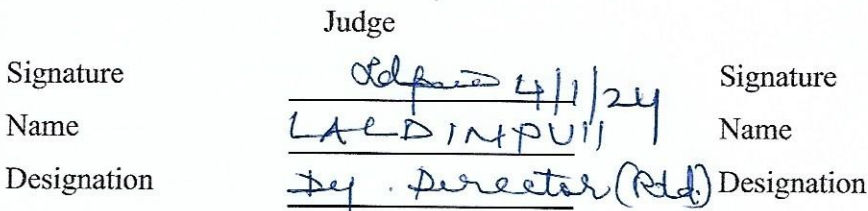 Judge
Signature 4/1/24 Signature
Name LALDINPUII Name
Designation Dy. Director (Rtd.) Designation